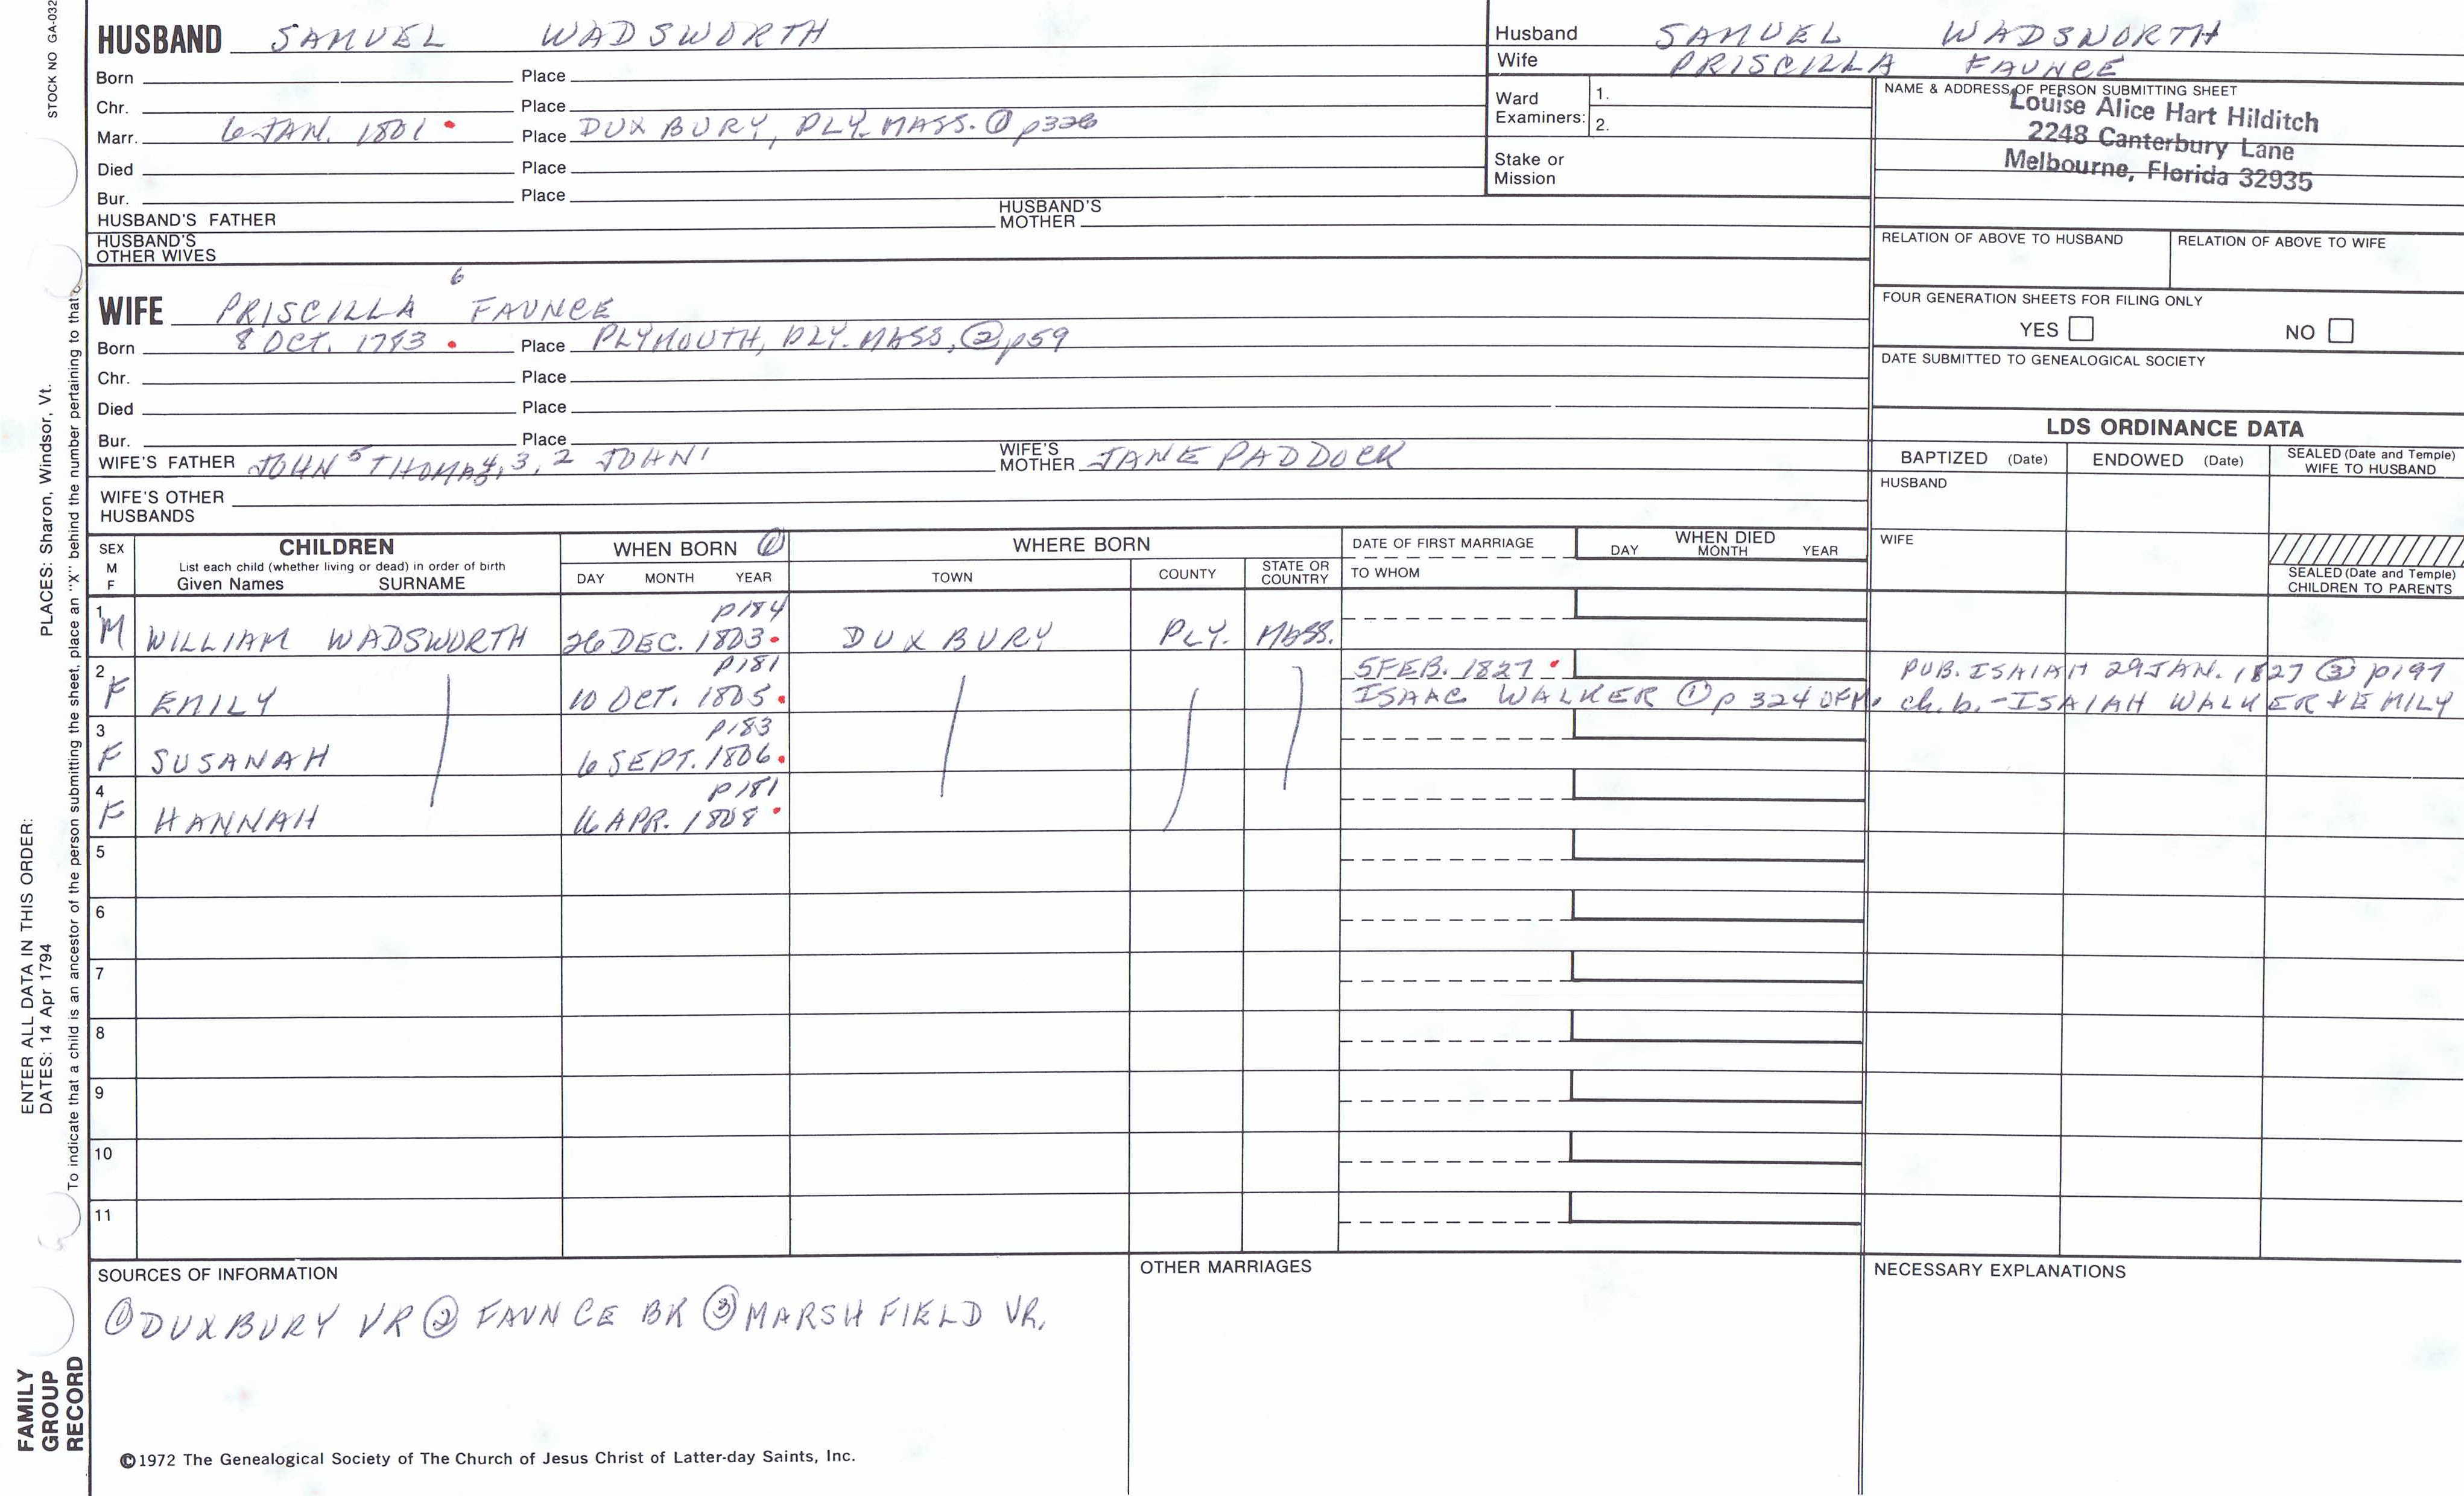 STOCK NO GA-032
HUSBAND SAMUEL WADSWORTH
Born Place
Chr. Place
Marr. 6 JAN. 1801 Place DUXBURY, PLY. MASS. ① p326
Died Place
Bur. Place
HUSBAND'S FATHER HUSBAND'S MOTHER
HUSBAND'S OTHER WIVES
Husband SAMUEL WADSWORTH
Wife PRISCILLA FAUNCE
Ward Examiners: 1.
2.
Stake or Mission
NAME & ADDRESS OF PERSON SUBMITTING SHEET
Louise Alice Hart Hilditch
2248 Canterbury Lane
Melbourne, Florida 32935
RELATION OF ABOVE TO HUSBAND RELATION OF ABOVE TO WIFE
FOUR GENERATION SHEETS FOR FILING ONLY
YES NO
DATE SUBMITTED TO GENEALOGICAL SOCIETY
WIFE PRISCILLA 6 FAUNCE
Born 8 OCT. 1783 Place PLYMOUTH, PLY. MASS, ② p59
Chr. Place
Died Place
Bur. Place
WIFE'S FATHER JOHN 5 THOMAS 4, 3, 2 JOHN 1 WIFE'S MOTHER JANE PADDOCK
WIFE'S OTHER HUSBANDS
LDS ORDINANCE DATA
BAPTIZED (Date) ENDOWED (Date) SEALED (Date and Temple) WIFE TO HUSBAND
HUSBAND
WIFE
SEALED (Date and Temple) CHILDREN TO PARENTS
SEX M F
CHILDREN
List each child (whether living or dead) in order of birth
Given Names SURNAME
WHEN BORN ①
DAY MONTH YEAR
WHERE BORN
TOWN COUNTY STATE OR COUNTRY
DATE OF FIRST MARRIAGE
TO WHOM
WHEN DIED
DAY MONTH YEAR
p184
1 M WILLIAM WADSWORTH 26 DEC. 1803 DUXBURY PLY. MASS.
p181 5 FEB. 1827 PUB. ISAIAH 29 JAN. 1827 ③ p197
2 F EMILY 10 OCT. 1805 ISAAC WALKER ① p 324 ch. b. - ISAIAH WALKER + EMILY
p183
3 F SUSANAH 6 SEPT. 1806
p181
4 F HANNAH 16 APR. 1808
5
6
7
8
9
10
11
SOURCES OF INFORMATION
① DUXBURY VR ② FAUNCE BK ③ MARSHFIELD VR.
OTHER MARRIAGES
NECESSARY EXPLANATIONS
©1972 The Genealogical Society of The Church of Jesus Christ of Latter-day Saints, Inc.
FAMILY
GROUP
RECORD
ENTER ALL DATA IN THIS ORDER:
DATES: 14 Apr 1794 PLACES: Sharon, Windsor, Vt.
To indicate that a child is an ancestor of the person submitting the sheet, place an "X" behind the number pertaining to that